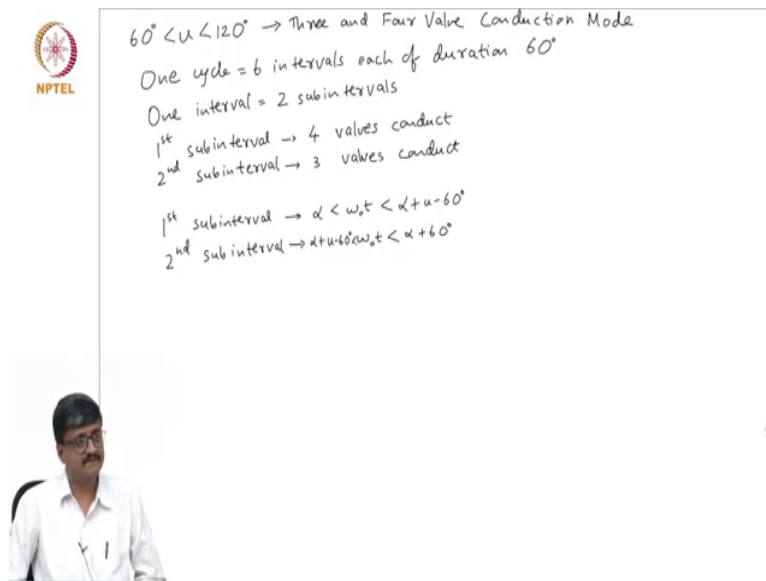 60° < u < 120° → Three and Four Valve Conduction Mode
One cycle = 6 intervals each of duration 60°
One interval = 2 subintervals
1st subinterval → 4 valves conduct
2nd subinterval → 3 valves conduct
1st subinterval → α < ω₀t < α+u-60°
2nd subinterval → α+u-60° < ω₀t < α+60°
NPTEL